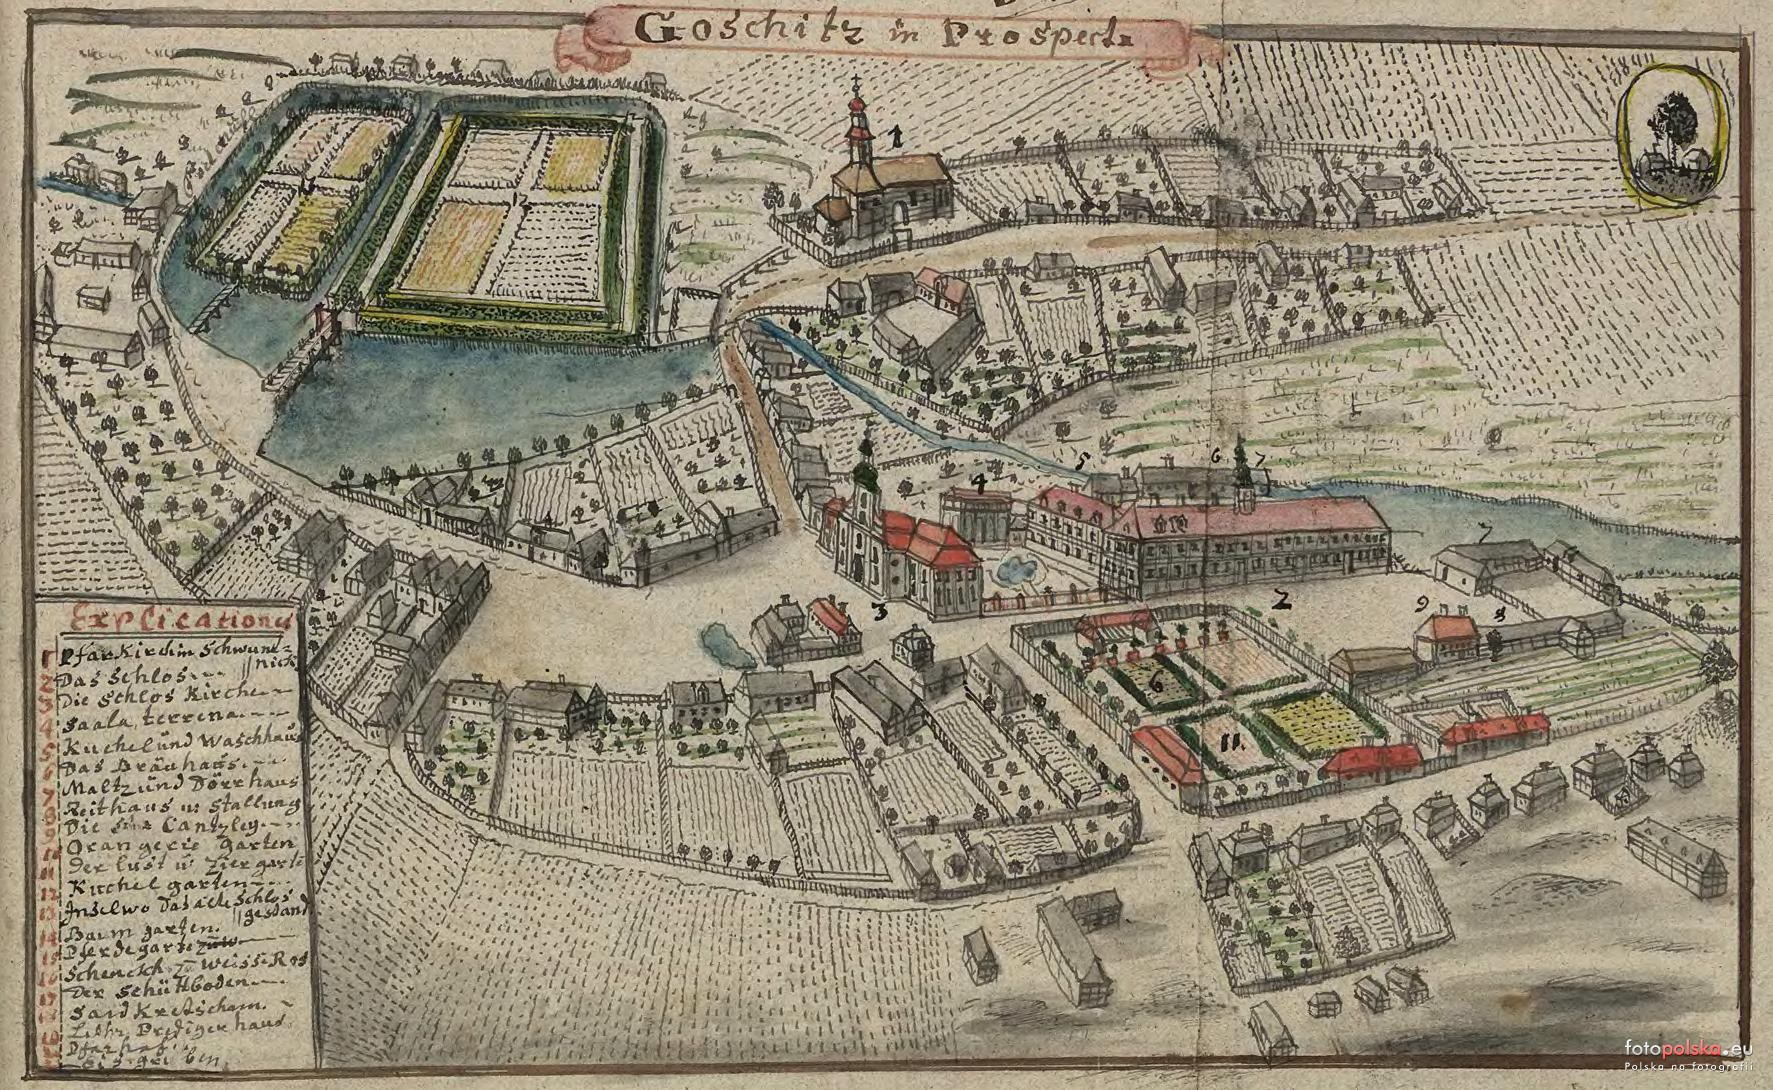 Goschitz in Prospect
1
12
4
5
6
7
7
3
2
9
8
6
11.
Explication
1 Pfar Kirch in Schwune=
nick
2 Das Schlos
3 Die Schlos Kirche
4 Saala terrena
5 Kuchel und Waschhaus
6 Das Bräuhaus
7 Maltz und Dörrhaus
8 Reithaus u: Stallung
9 Die Cantzley
10 Orangerie garten
11 Der lust u: Ziergarte
12 Kuchel garten
13 Insel wo das alte Schlos
gestand
14 Baum garten.
15 Pferde garte
16 Schenckh z: Weisse Ros
17 Der Schüttboden
Sand Kretscham
Prediger haus
fotopolska.eu
Polska na fotografii